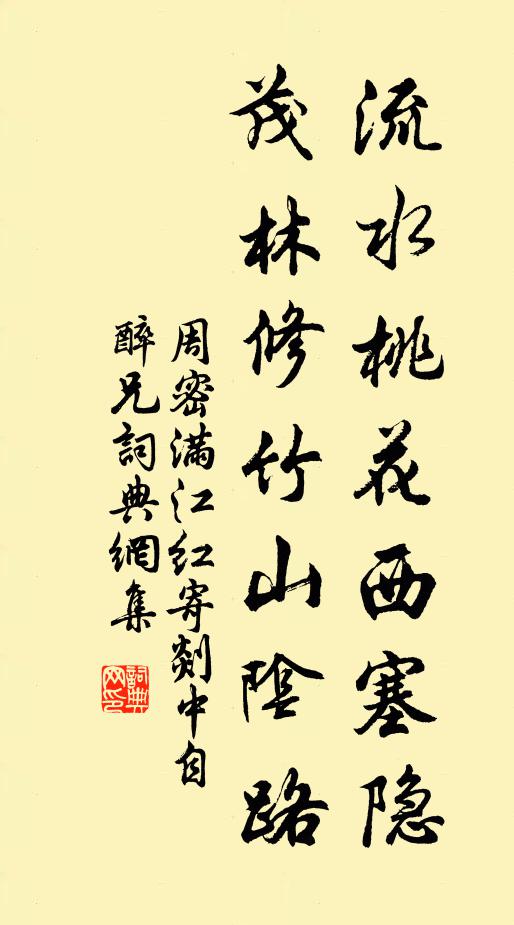 流水桃花西塞隐
茂林修竹山陰路
周密滿江紅寄剡中自
醉兄詞典網集
詞典
网印